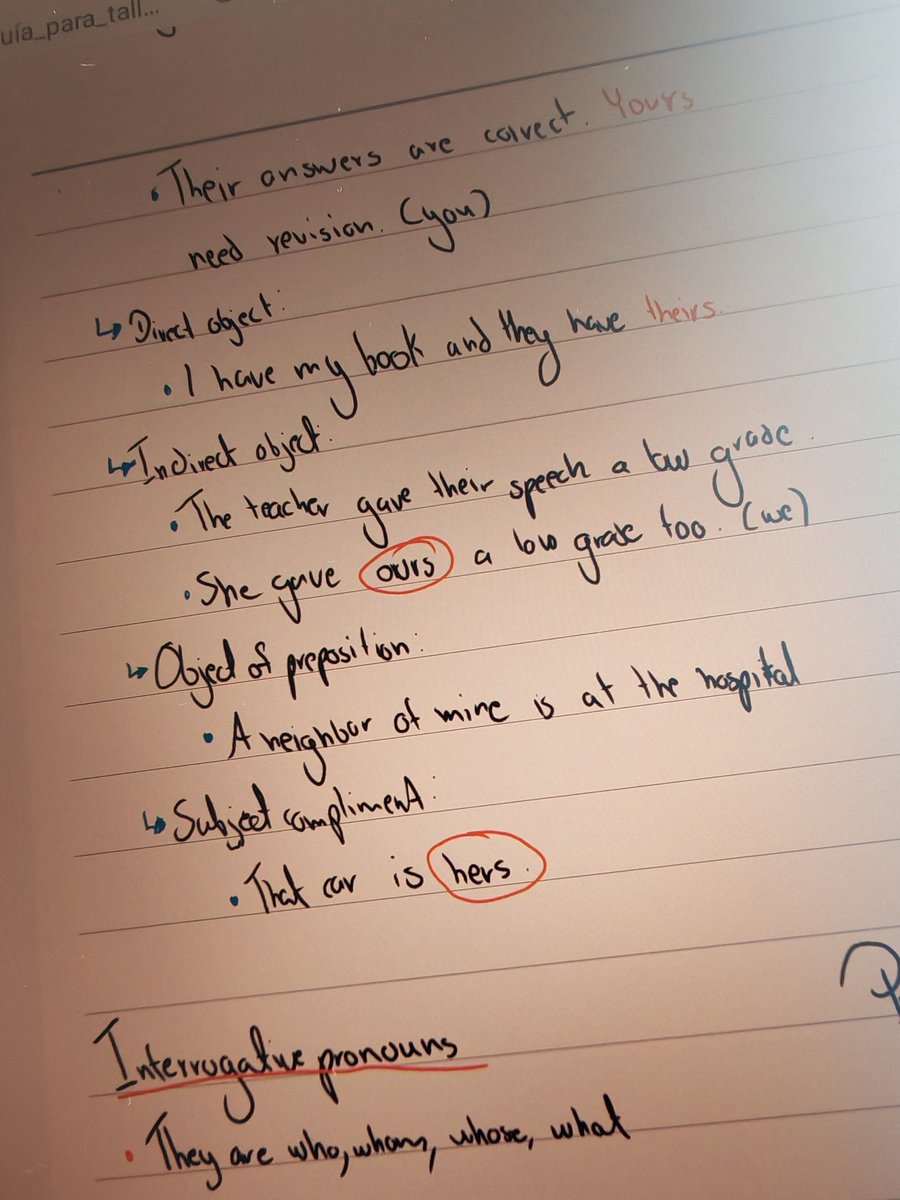 uía_para_tall...
• Their answers are correct. Yours
need revision. (you)
↳ Direct object:
• I have my book and they have theirs.
↳ Indirect object:
• The teacher gave their speech a low grade.
• She gave ours a low grade too. (we)
↳ Object of preposition:
• A neighbor of mine is at the hospital
↳ Subject compliment:
• That car is hers.
Interrogative pronouns
• They are who, whom, whose, what